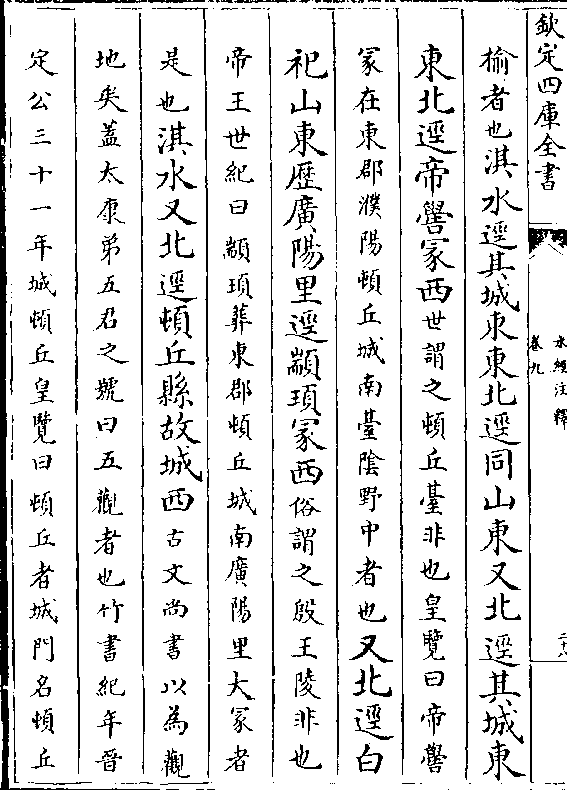 欽定四庫全書
水經注釋
卷九
榆者也淇水逕其城東東北逕同山東又北逕其城東
東北逕帝嚳冢西世謂之頓丘臺非也皇覽曰帝嚳
冢在東郡濮陽頓丘城南臺陰野中者也又北逕白
祀山東歷廣陽里逕顓頊冢西俗謂之殷王陵非也
帝王世紀曰顓頊葬東郡頓丘城南廣陽里大冢者
是也淇水又北逕頓丘縣故城西古文尚書以為觀
地矣蓋太康弟五君之號曰五觀者也竹書紀年晉
定公三十一年城頓丘皇覽曰頓丘者城門名頓丘